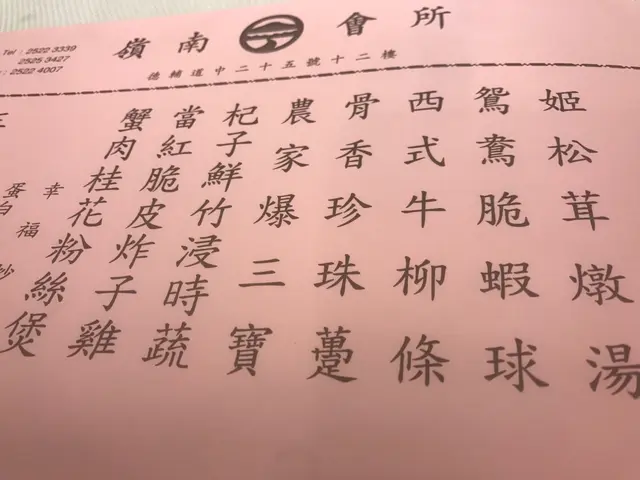 嶺南會所
Tel : 2522 3339
2525 3427
: 2522 4007
德輔道中二十五號十二樓
姬松茸燉湯
鴛鴦脆蝦球
西式牛柳條
骨香珍珠躉
農家爆三寶
杞子鮮竹浸時蔬
當紅脆皮炸子雞
蟹肉桂花粉絲煲
幸福
蛋白